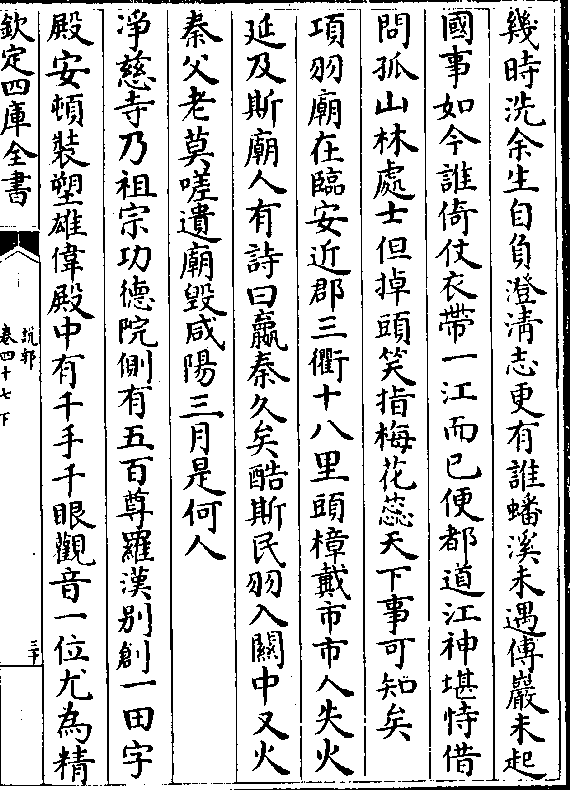 幾時洗余生自負澄清志更有誰蟠溪未遇傅巖未起
國事如今誰倚仗衣帶一江而已便都道江神堪恃借
問孤山林處士但掉頭笑指梅花蕊天下事可知矣
項羽廟在臨安近郡三衢十八里頭樟戴市市人失火
延及斯廟人有詩曰嬴秦久矣酷斯民羽入關中又火
秦父老莫嗟遺廟毀咸陽三月是何人
淨慈寺乃祖宗功德院側有五百尊羅漢别創一田字
殿安頓裝塑雄偉殿中有千手千眼觀音一位尤為精
欽定四庫全書
說郛
卷四十七下
三十